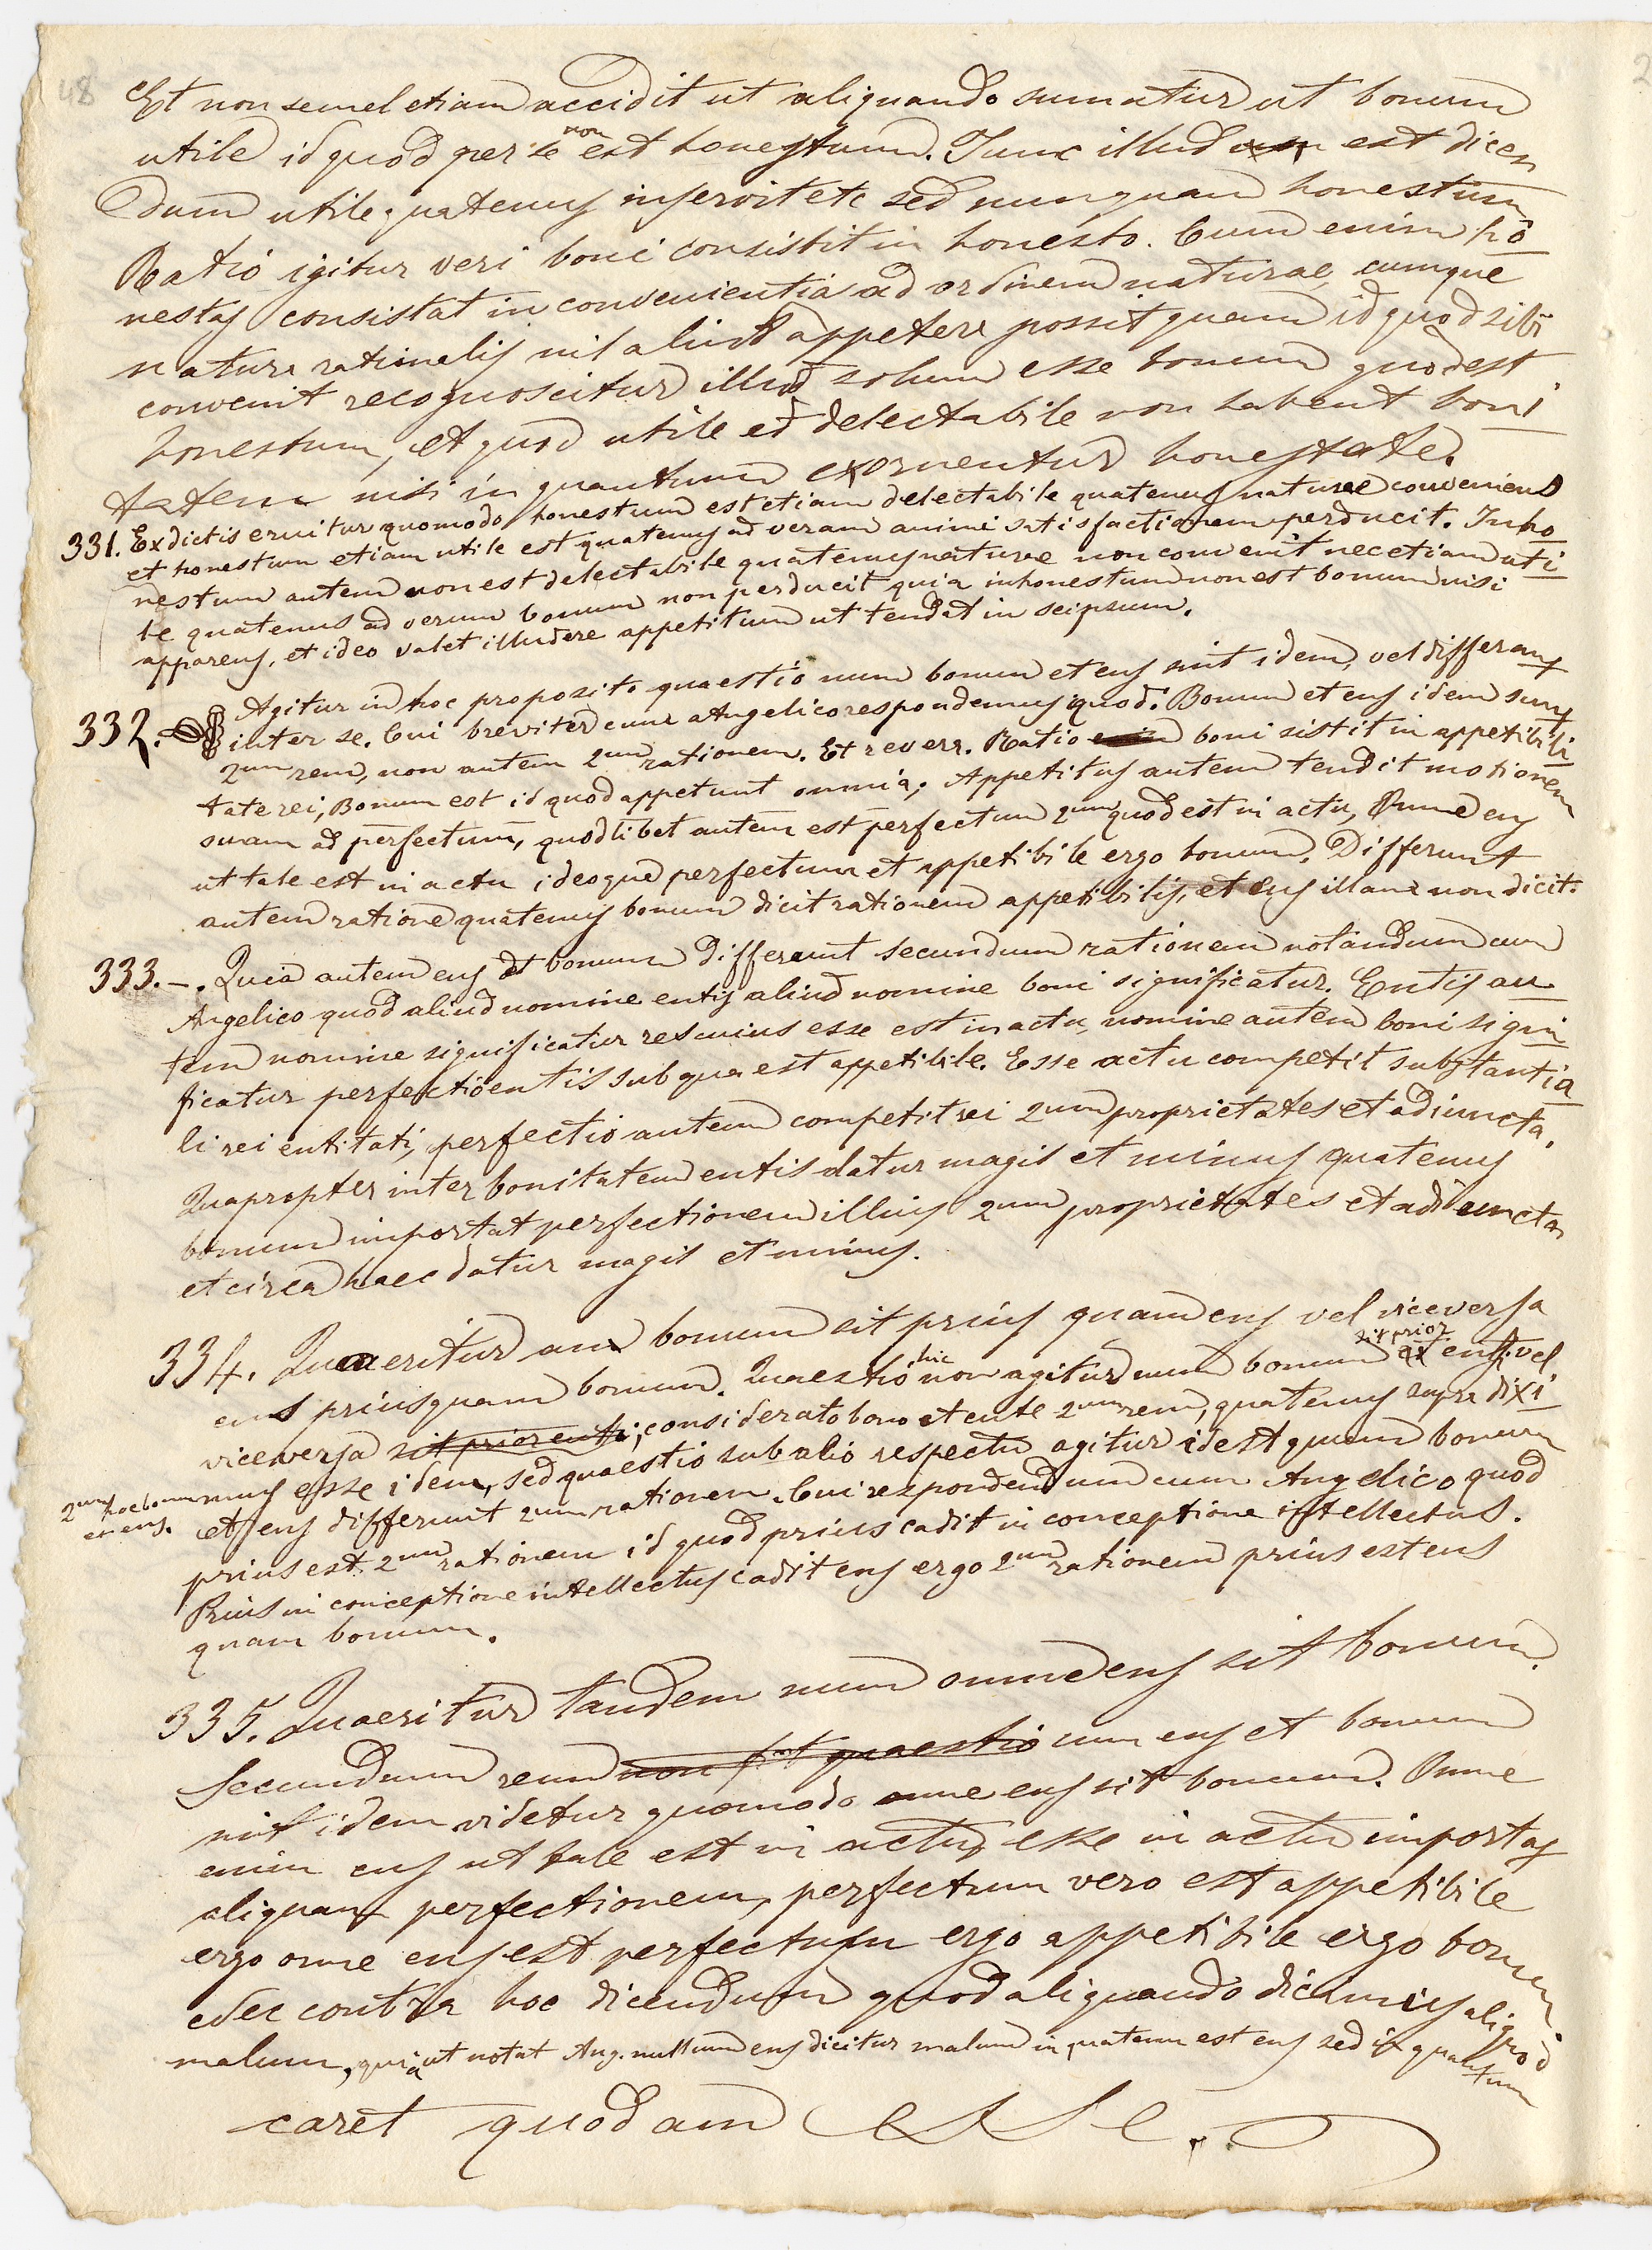 48
Et non semel etiam accidit ut aliquando sumatur ut bonum
utile id quod per se non est honestum. Tunc illud est dicen
dum utile quatenus inservit etc sed nunquam honestum
Ratio igitur veri boni consistit in honesto. Cum enim ho
nestas consistat in convenientia ad ordinem naturae, cumque
natura rationalis nil aliud appetere possit quam id quod sibi
convenit recognoscitur illud solum esse bonum quod est
honestum, et quod utile et delectabile non habent boni
tatem nisi in quantum exornentur honestate.
331. Ex dictis eruitur quomodo honestum est etiam delectabile quatenus naturae conveniens
et honestum etiam utile est quatenus ad veram animi satisfactionem perducit. Inho
nestum autem non est delectabile quatenus naturae non convenit nec etiam uti
le quatenus ad verum bonum non perducit quia inhonestum non est bonum nisi
apparens, et ideo valet illudere appetitum ut tendat in seipsum.
332. Agitur in hoc proposito quaestio num bonum et ens sint idem, vel differant
inter se. Cui breviter cum Angelico respondemus quod: Bonum et ens idem sunt
2um rem, non autem 2um rationem. Et revera. Ratio boni sistit in appetibili
tate rei, Bonum est id quod appetunt omnia; Appetitus autem tendit motionem
suam ad perfectum, quodlibet autem est perfectum 2um quod est in actu, Omne ens
ut tale est in actu ideoque perfectum et appetibile ergo bonum. Differunt
autem ratione quatenus bonum dicit rationem appetibilis, et ens illam non dicit.
333.-. Quia autem ens et bonum differunt secundum rationem notandum cum
Angelico quod aliud nomine entis aliud nomine boni significatur. Entis au
tem nomine significatur res cuius esse est in actu, nomine autem boni signi
ficatur perfectio entis sub qua est appetibile. Esse actu competit substantia
li rei entitati, perfectio autem competit rei 2um proprietates et adiuncta.
Quapropter inter bonitatem entis datur magis et minus quatenus
bonum importat perfectionem illius 2um proprietates et adiuncta
et circa haec datur magis et minus.
334. Quaeritur an bonum sit prius quam ens vel viceversa
ens prius quam bonum. Quaestio hic non agitur num bonum sit prior ens, vel
viceversa sit prior enti, considerato bono et ente 2um rem, quatenus supra dixi
mus esse idem, sed quaestio sub alio respectu agitur idest quum bonum
2um hoc bonum
et ens.
et ens differunt 2um rationem. Cui respondendum cum Angelico quod
prius est 2um rationem id quod prius cadit in conceptione intellectus.
Prius in conceptione intellectus cadit ens ergo 2um rationem prius est ens
quam bonum.
335. Quaeritur tandem num omne ens sit bonum.
Secundum rem non fit quaestio num ens et bonum
sint idem videtur quomodo omne ens sit bonum. Omne
enim ens ut tale est in actu, esse in actu importat
aliquam perfectionem, perfectum vero est appetibile
ergo omne ens est perfectum ergo appetibile ergo bonum.
Nec contra hoc dicendum quod aliquando dicimus aliquod
malum, quia ut notat Ang. nullum ens dicitur malum in quatenus est ens sed in quantum
caret quodam esse.